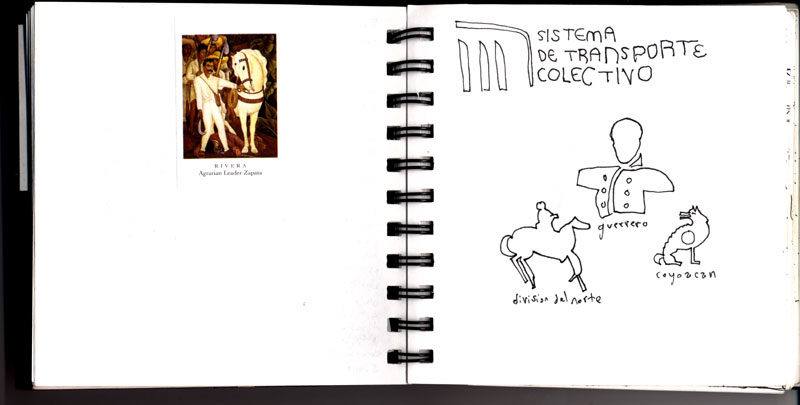 RIVERA
Agrarian Leader Zapata
SISTEMA
DE TRANSPORTE
COLECTIVO
guerrero
coyoacan
division del norte